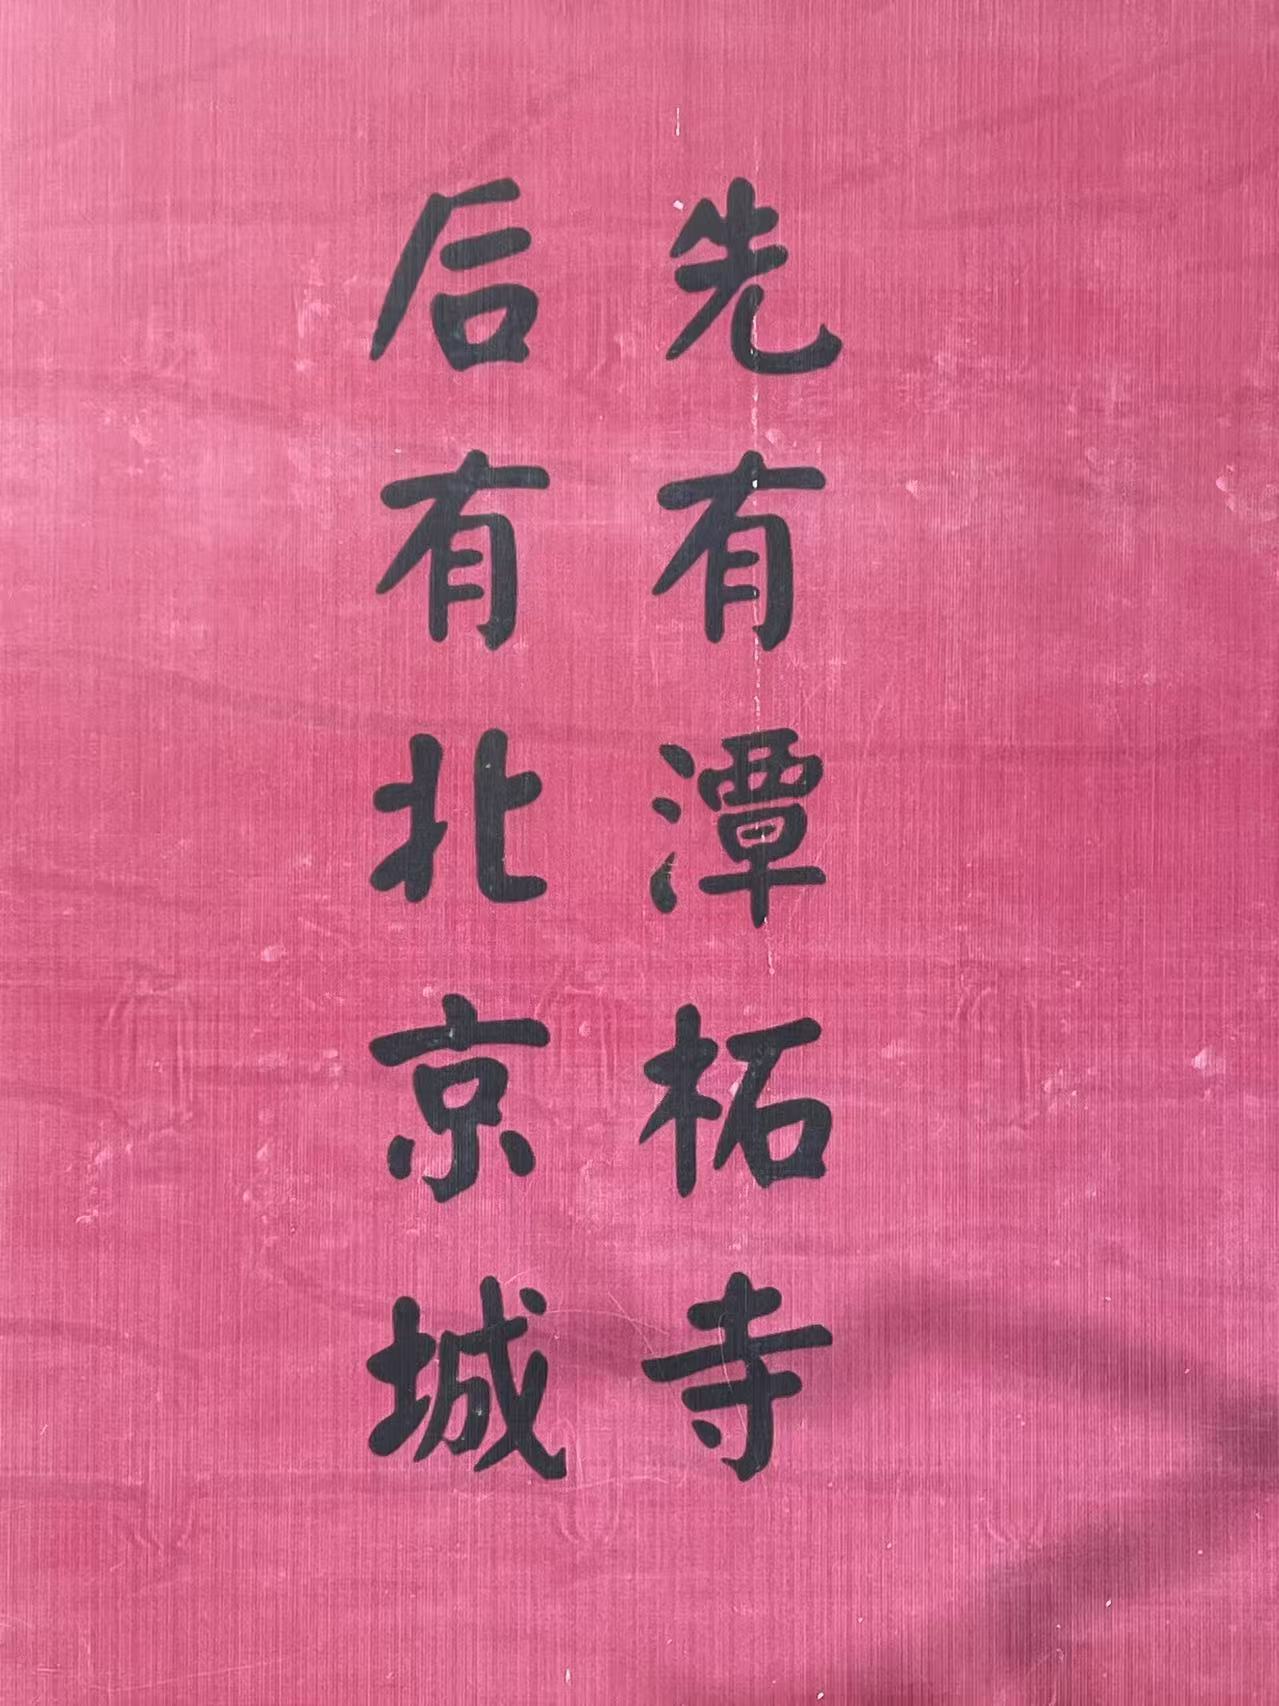 先有潭柘寺
后有北京城